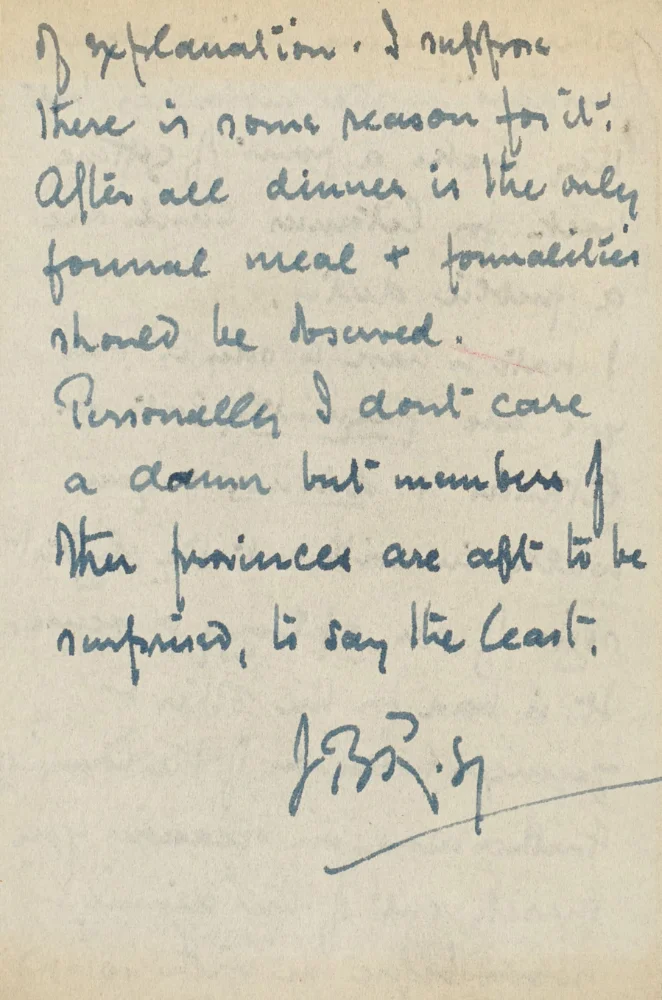 of explanation. I suppose
there is some reason for it.
After all dinner is the only
formal meal + formalities
should be observed.
Personally I dont care
a damn but members of
other provinces are apt to be
surprised, to say the least.